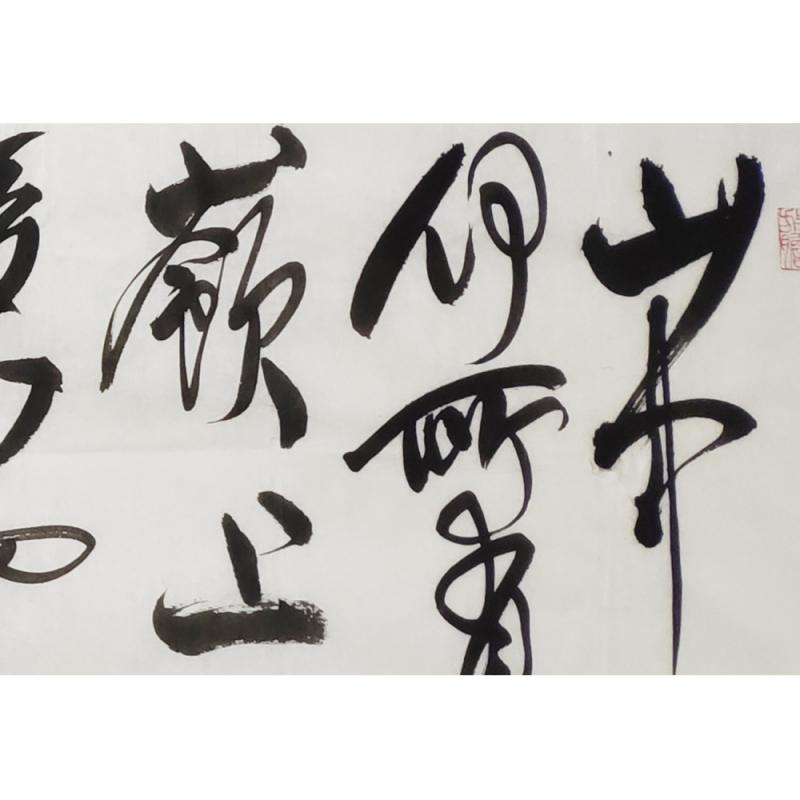 山中
何所有
嶺上